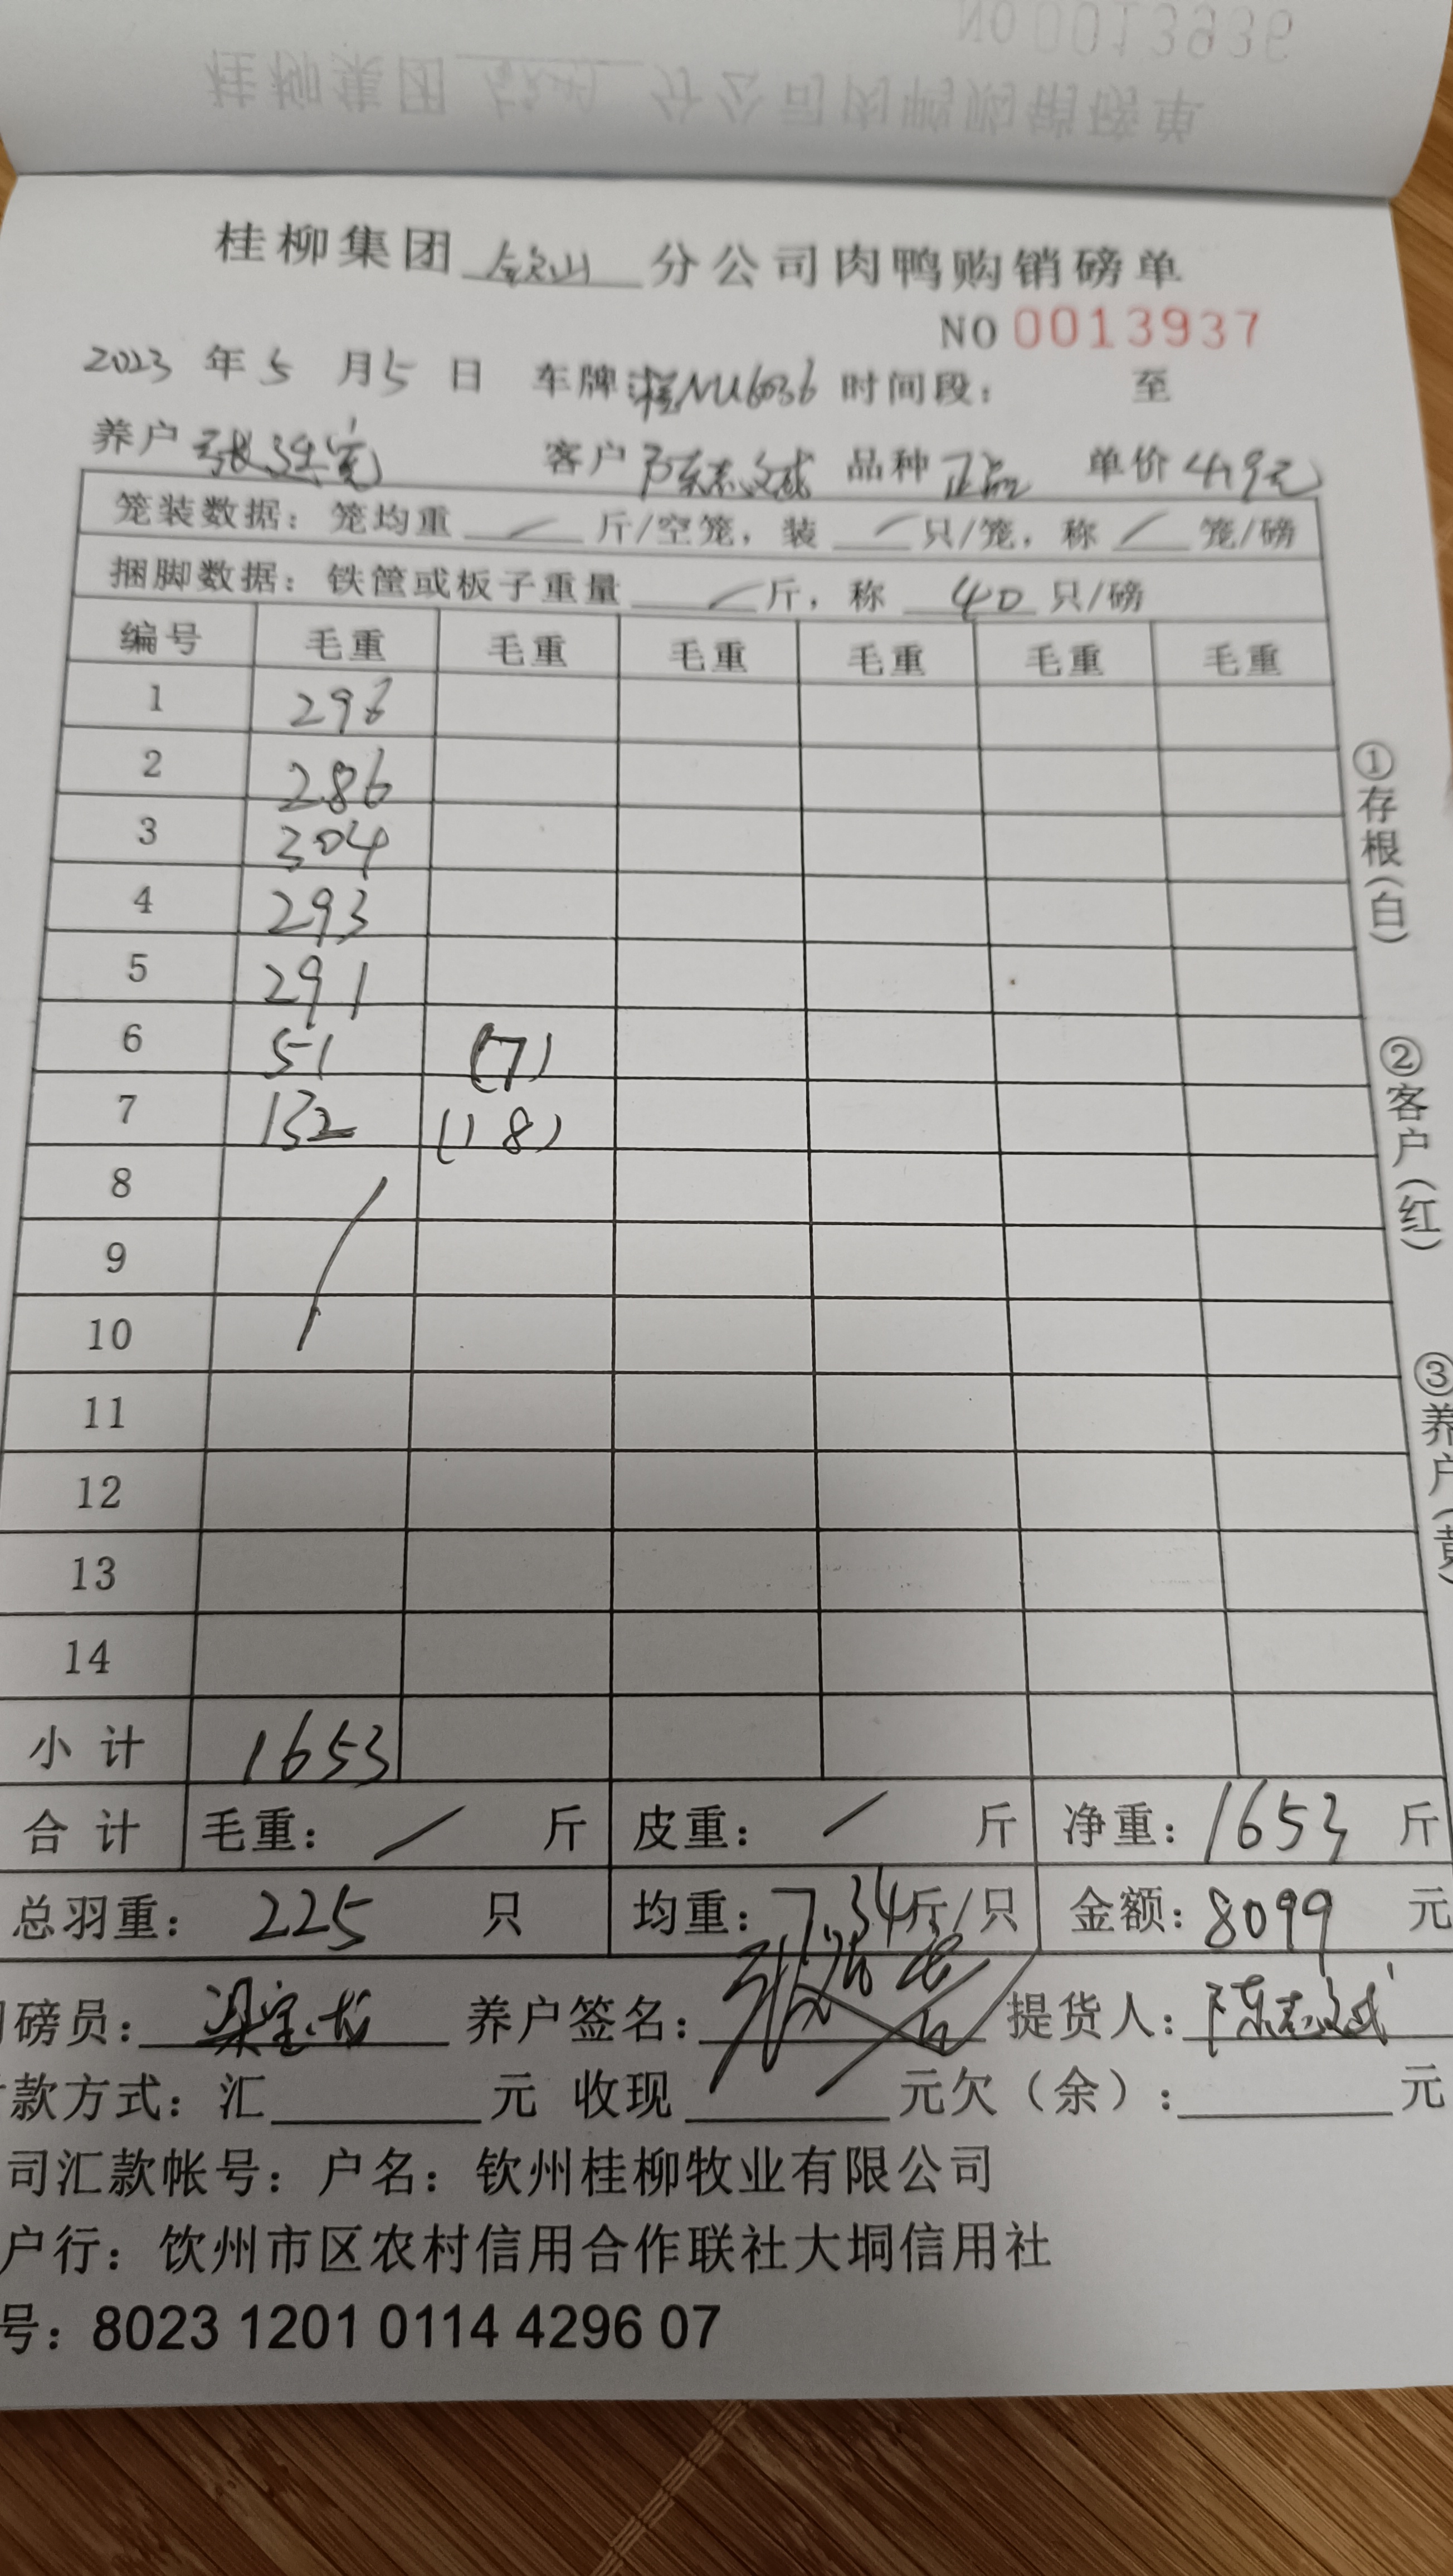 桂柳集团 钦山 分公司肉鸭购销磅单
NO 0013937
2023 年 5 月 5 日 车牌 NU6036 时间段： 至
养户 张 客户 陈志斌 品种 正品 单价 4.9元
笼装数据：笼均重 / 斤/空笼，装 / 只/笼，称 / 笼/磅
捆脚数据：铁筐或板子重量 / 斤，称 40 只/磅
编号 毛重 毛重 毛重 毛重 毛重 毛重
1 296
2 286
3 304
4 293
5 291
6 51 (7)
7 132 (18)
8
9
10
11
12
13
14
小计 1653
合计 毛重： / 斤 皮重： / 斤 净重：1653 斤
总羽重： 225 只 均重：7.34斤/只 金额：8099 元
磅员：梁宝龙 养户签名：张 提货人：陈志斌
款方式：汇 元 收现 元欠（余）： 元
司汇款帐号：户名：钦州桂柳牧业有限公司
户行：钦州市区农村信用合作联社大垌信用社
号：8023 1201 0114 4296 07
①存根（白）
②客户（红）
③养户（黄）